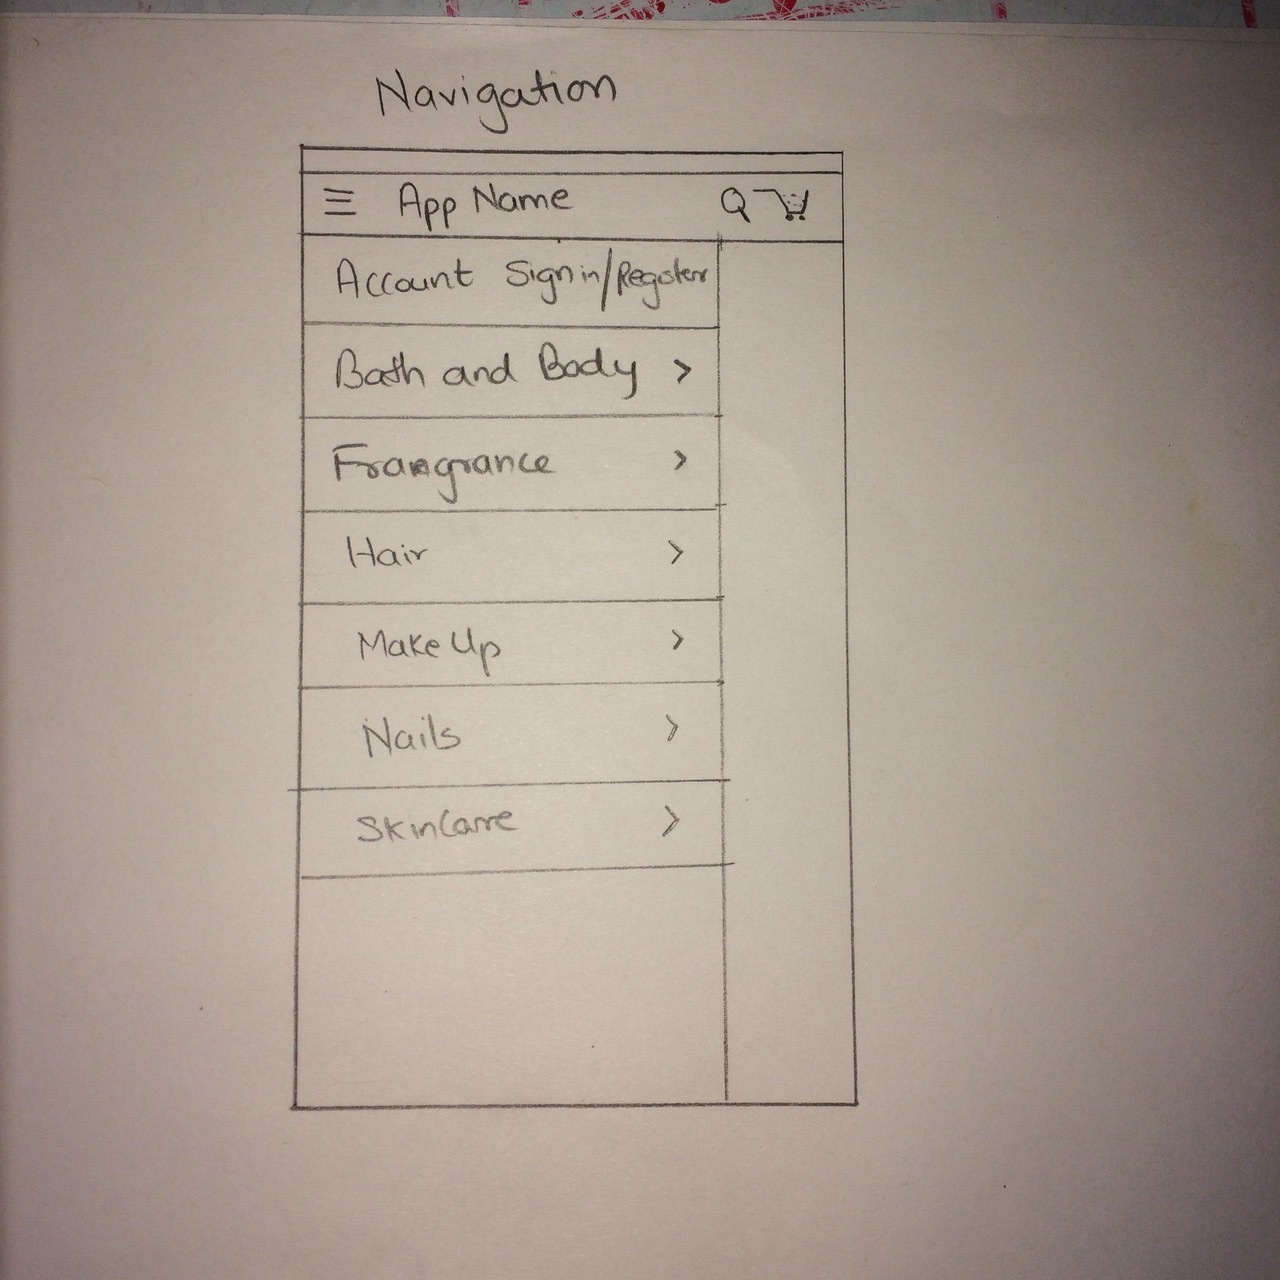 Navigation
App Name
Account Sign in/Register
Bath and Body >
Frangrance >
Hair >
Make Up >
Nails >
SkinCare >